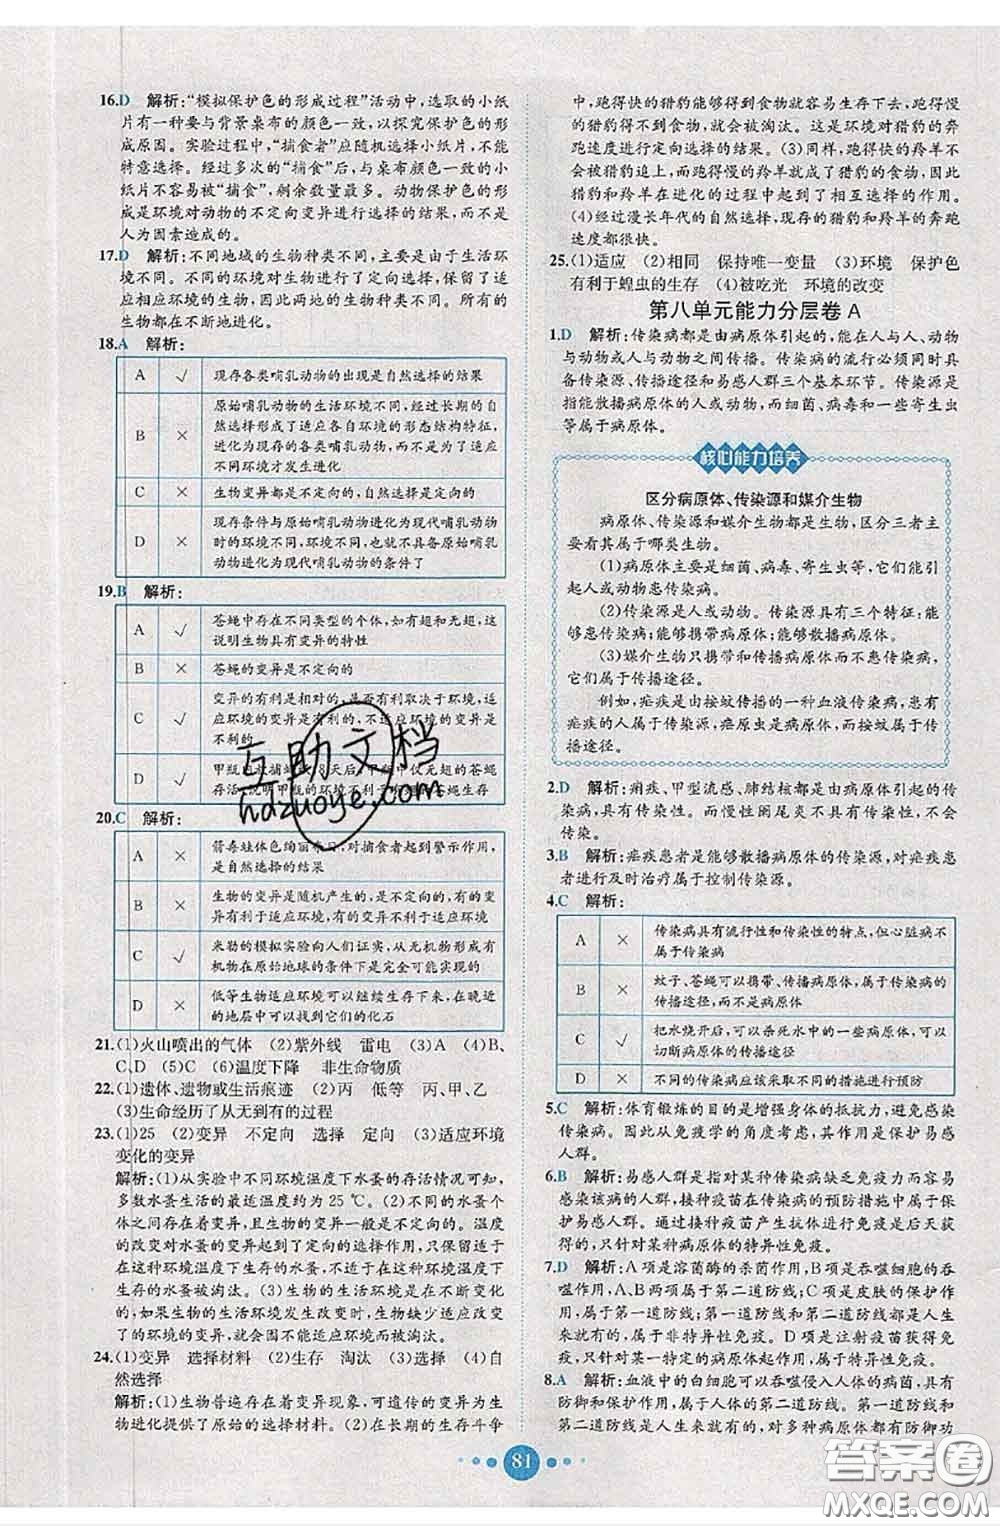 16.D 解析:“模拟保护色的形成过程”活动中,选取的小纸
片有一种要与背景桌布的颜色一致,以探究保护色的形
成原因。实验过程中,“捕食者”应随机选择小纸片,不能
特意选择。经过多次的“捕食”后,与桌布颜色一致的小
纸片不容易被“捕食”,剩余数量最多。动物保护色的形
成是环境对动物的不定向变异进行选择的结果,而不是
人为因素造成的。
17.D 解析:不同地域的生物种类不同,主要是由于生活环
境不同。不同的环境对生物进行了定向选择,保留了适
应相应环境的生物,因此两地的生物种类不同。所有的
生物都在不断地进化。
18.A 解析:
A √ 现存各类哺乳动物的出现是自然选择的结果
B × 原始哺乳动物的生活环境不同,经过长期的自然
选择,形成了适应各自环境的形态结构特征,
进化为现存的各类哺乳动物,而不是为了适应
不同环境才发生进化
C × 生物变异都是不定向的,选择是定向的
D × 现存条件与原始哺乳动物进化为现代哺乳动物
时的环境不同,环境不同,也就不具备原始哺乳
动物进化为现代哺乳动物的条件了
19.B 解析:
A √ 苍蝇中存在不同类型的个体,如有翅和无翅,这
说明生物具有变异的特性
B × 苍蝇的变异是不定向的
C √ 变异的有利是相对的,是否有利取决于环境,适
应环境的变异是有利的,不适应环境的变异是
不利的
D √ 甲瓶内放捕蝇纸,8天后,甲瓶中仅无翅的苍蝇
存活,说明甲瓶的环境不利于有翅苍蝇生存
20.C 解析:
A × 箭毒蛙体色绚丽夺目,对捕食者起到警示作用,
是自然选择的结果
B × 生物的变异是随机产生的,是不定向的,有的变
异有利于适应环境,有的变异不利于适应环境
C √ 米勒的模拟实验向人们证实,从无机物形成有
机物在原始地球的条件下是完全可能实现的
D × 低等生物适应环境可以继续生存下来,在晚近
的地层中可以找到它们的化石
21.(1)火山喷出的气体 (2)紫外线 雷电 (3)A (4)B、
C、D (5)C (6)温度下降 非生命物质
22.(1)遗体、遗物或生活痕迹 (2)丙 低等 丙、甲、乙
(3)生命经历了从无到有的过程
23.(1)25 (2)变异 不定向 选择 定向 (3)适应环境
变化的变异
解析:(1)从实验中不同环境温度下水蚤的存活情况可知,
多数水蚤生活的最适温度约为25 ℃。(2)不同的水蚤个
体之间存在着变异,且生物的变异一般是不定向的。温度
的改变对水蚤的变异起到了定向的选择作用,只保留适于
在这种环境下生存的水蚤,不适于在这种环境温度下生
存的水蚤被淘汰。(3)生物生活的环境是在不断变化
的,如果生物的生活环境发生改变时,生物缺少适应改变
了的环境的变异,就会因不能适应环境而被淘汰。
24.(1)变异 选择材料 (2)生存 淘汰 (3)选择 (4)自
然选择
解析:(1)生物普遍存在着变异现象,可遗传的变异为生
物进化提供了原始的选择材料。(2)在长期的生存斗争
中,跑得快的猎豹能够得到食物就容易生存下去,跑得慢
的猎豹得不到食物,就会被淘汰。这是环境对猎豹的奔
跑速度进行定向选择的结果。(3)同样,跑得慢的羚羊不
会被猎豹追上,而跑得慢的羚羊就会成为猎豹的食物,因
此猎豹和羚羊在进化的过程中起到了相互选择的作用。
(4)经过漫长年代的自然选择,现存的猎豹和羚羊的奔跑
速度都很快。
25.(1)适应 (2)相同 保持唯一变量 (3)环境 保护色
有利于蝗虫的生存 (4)被吃光 环境的改变
第八单元能力分层卷 A
1.D 解析:传染病都是由病原体引起的,能在人与人、动物
与动物或人与动物之间传播。传染病的流行必须同时具
备传染源、传播途径和易感人群三个基本环节。传染源是
指能散播病原体的人或动物,而细菌、病毒和一些寄生虫
等属于病原体。
核心能力培养
区分病原体、传染源和媒介生物
病原体、传染源和媒介生物都是生物,区分三者主
要看其属于哪类生物。
(1)病原体主要是细菌、病毒、寄生虫等,它们能引
起人或动物患传染病。
(2)传染源是人或动物。传染源具有三个特征:能
够患传染病;能够携带病原体;能够散播病原体。
(3)媒介生物只携带和传播病原体而不患传染病,
它们属于传播途径。
例如,疟疾是由按蚊传播的一种血液传染病,患有
疟疾的人属于传染源,疟原虫是病原体,而按蚊属于传
播途径。
2.D 解析:痢疾、甲型流感、肺结核都是由病原体引起的传
染病,具有传染性。而慢性阑尾炎不具有传染性,不会
传染。
3.B 解析:疟疾患者是能够散播病原体的传染源,对疟疾患
者进行及时治疗属于控制传染源。
4.C 解析:
A × 传染病具有流行性和传染性的特点,但心脏病不
属于传染病
B × 蚊子、苍蝇可以携带、传播病原体,属于传染病的
传播途径,而不是病原体
C √ 把水烧开后,可以杀死水中的一些病原体,可以
切断传染病的传播途径
D × 不同的传染病应该采取不同的措施进行预防
5.C 解析:体育锻炼的目的是增强身体的抵抗力,避免感染
传染病。因此从免疫学的角度考虑,属于保护易感
人群。
6.B 解析:易感人群是指对某种传染病缺乏免疫力而容易
感染该病的人群,接种疫苗在传染病的预防措施中属于保
护易感人群。通过接种疫苗产生抗体进行免疫是后天获
得的,只针对某种病原体的特异性免疫。
7.D 解析:A项是溶菌酶的杀菌作用,B项是吞噬细胞的吞
噬作用,A、B两项属于第二道防线;C项是皮肤的保护作
用,属于第一道防线;第一道防线和第二道防线都是人生
来就有的,属于非特异性免疫。D项是注射疫苗获得免
疫,只对某一特定的病原体起作用,属于特异性免疫。
8.A 解析:血液中的白细胞可以吞噬侵入人体的病菌,具有
防御和保护作用,属于人体的第二道防线。第一道防线和
第二道防线是人生来就有的,对多种病原体都有防御功
81
互助文档
hdzuoye.com
答案圈
MXQE.COM